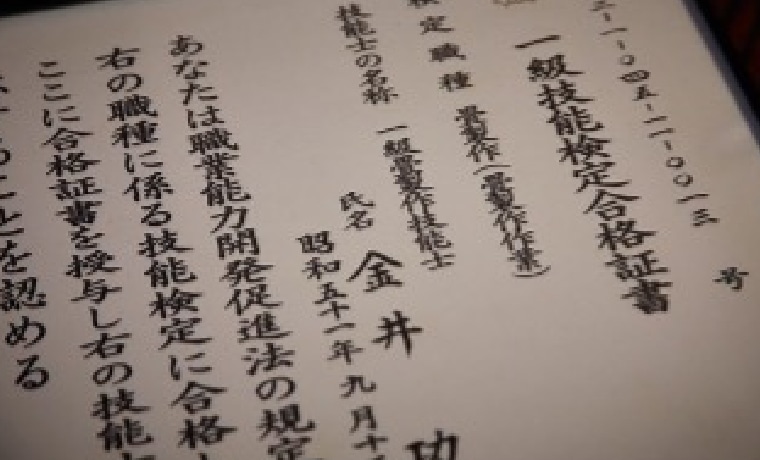 一-〇四五-一一-〇〇一三
号
一級技能検定合格証書
検定職種
畳製作(畳製作作業)
技能士の名称
一級畳製作技能士
氏名
金井
功
昭和五十一年九月十
あなたは職業能力開発促進法の規定
右の職種に係る技能検定に合格し
ここに合格証書を授与し右の技能士
を認める